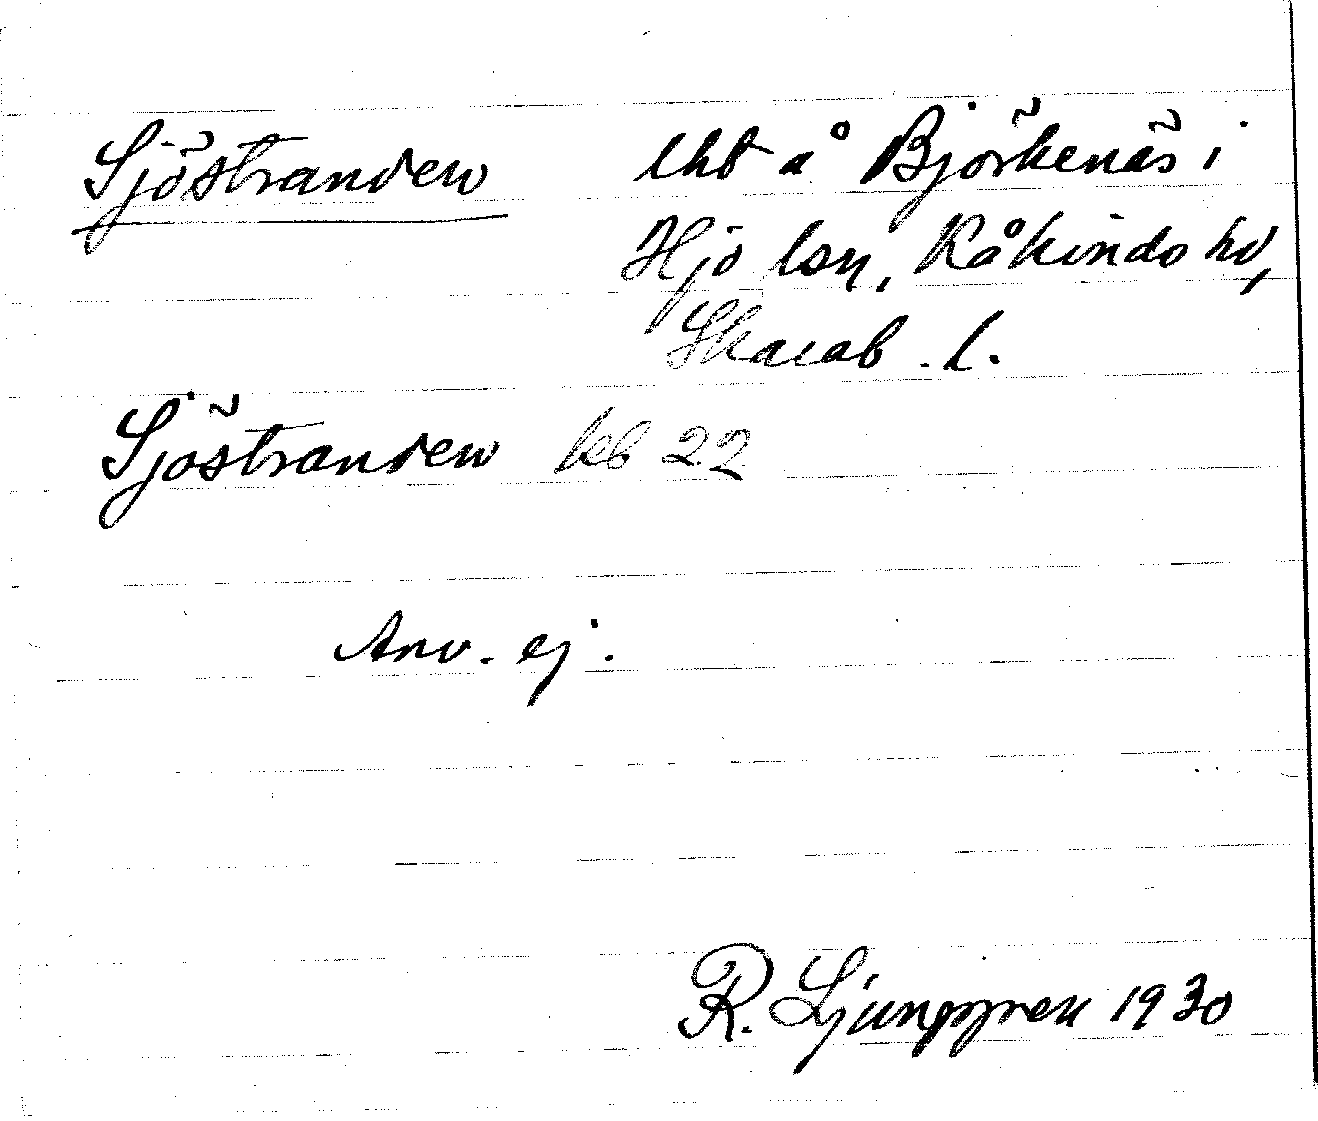 Sjöstranden lht å Björkenäs i
Hjo lsn, Kåkindo hd,
Skarab. l.
Sjöstranden kb 22
Anv. ej.
R. Ljunggren 1930